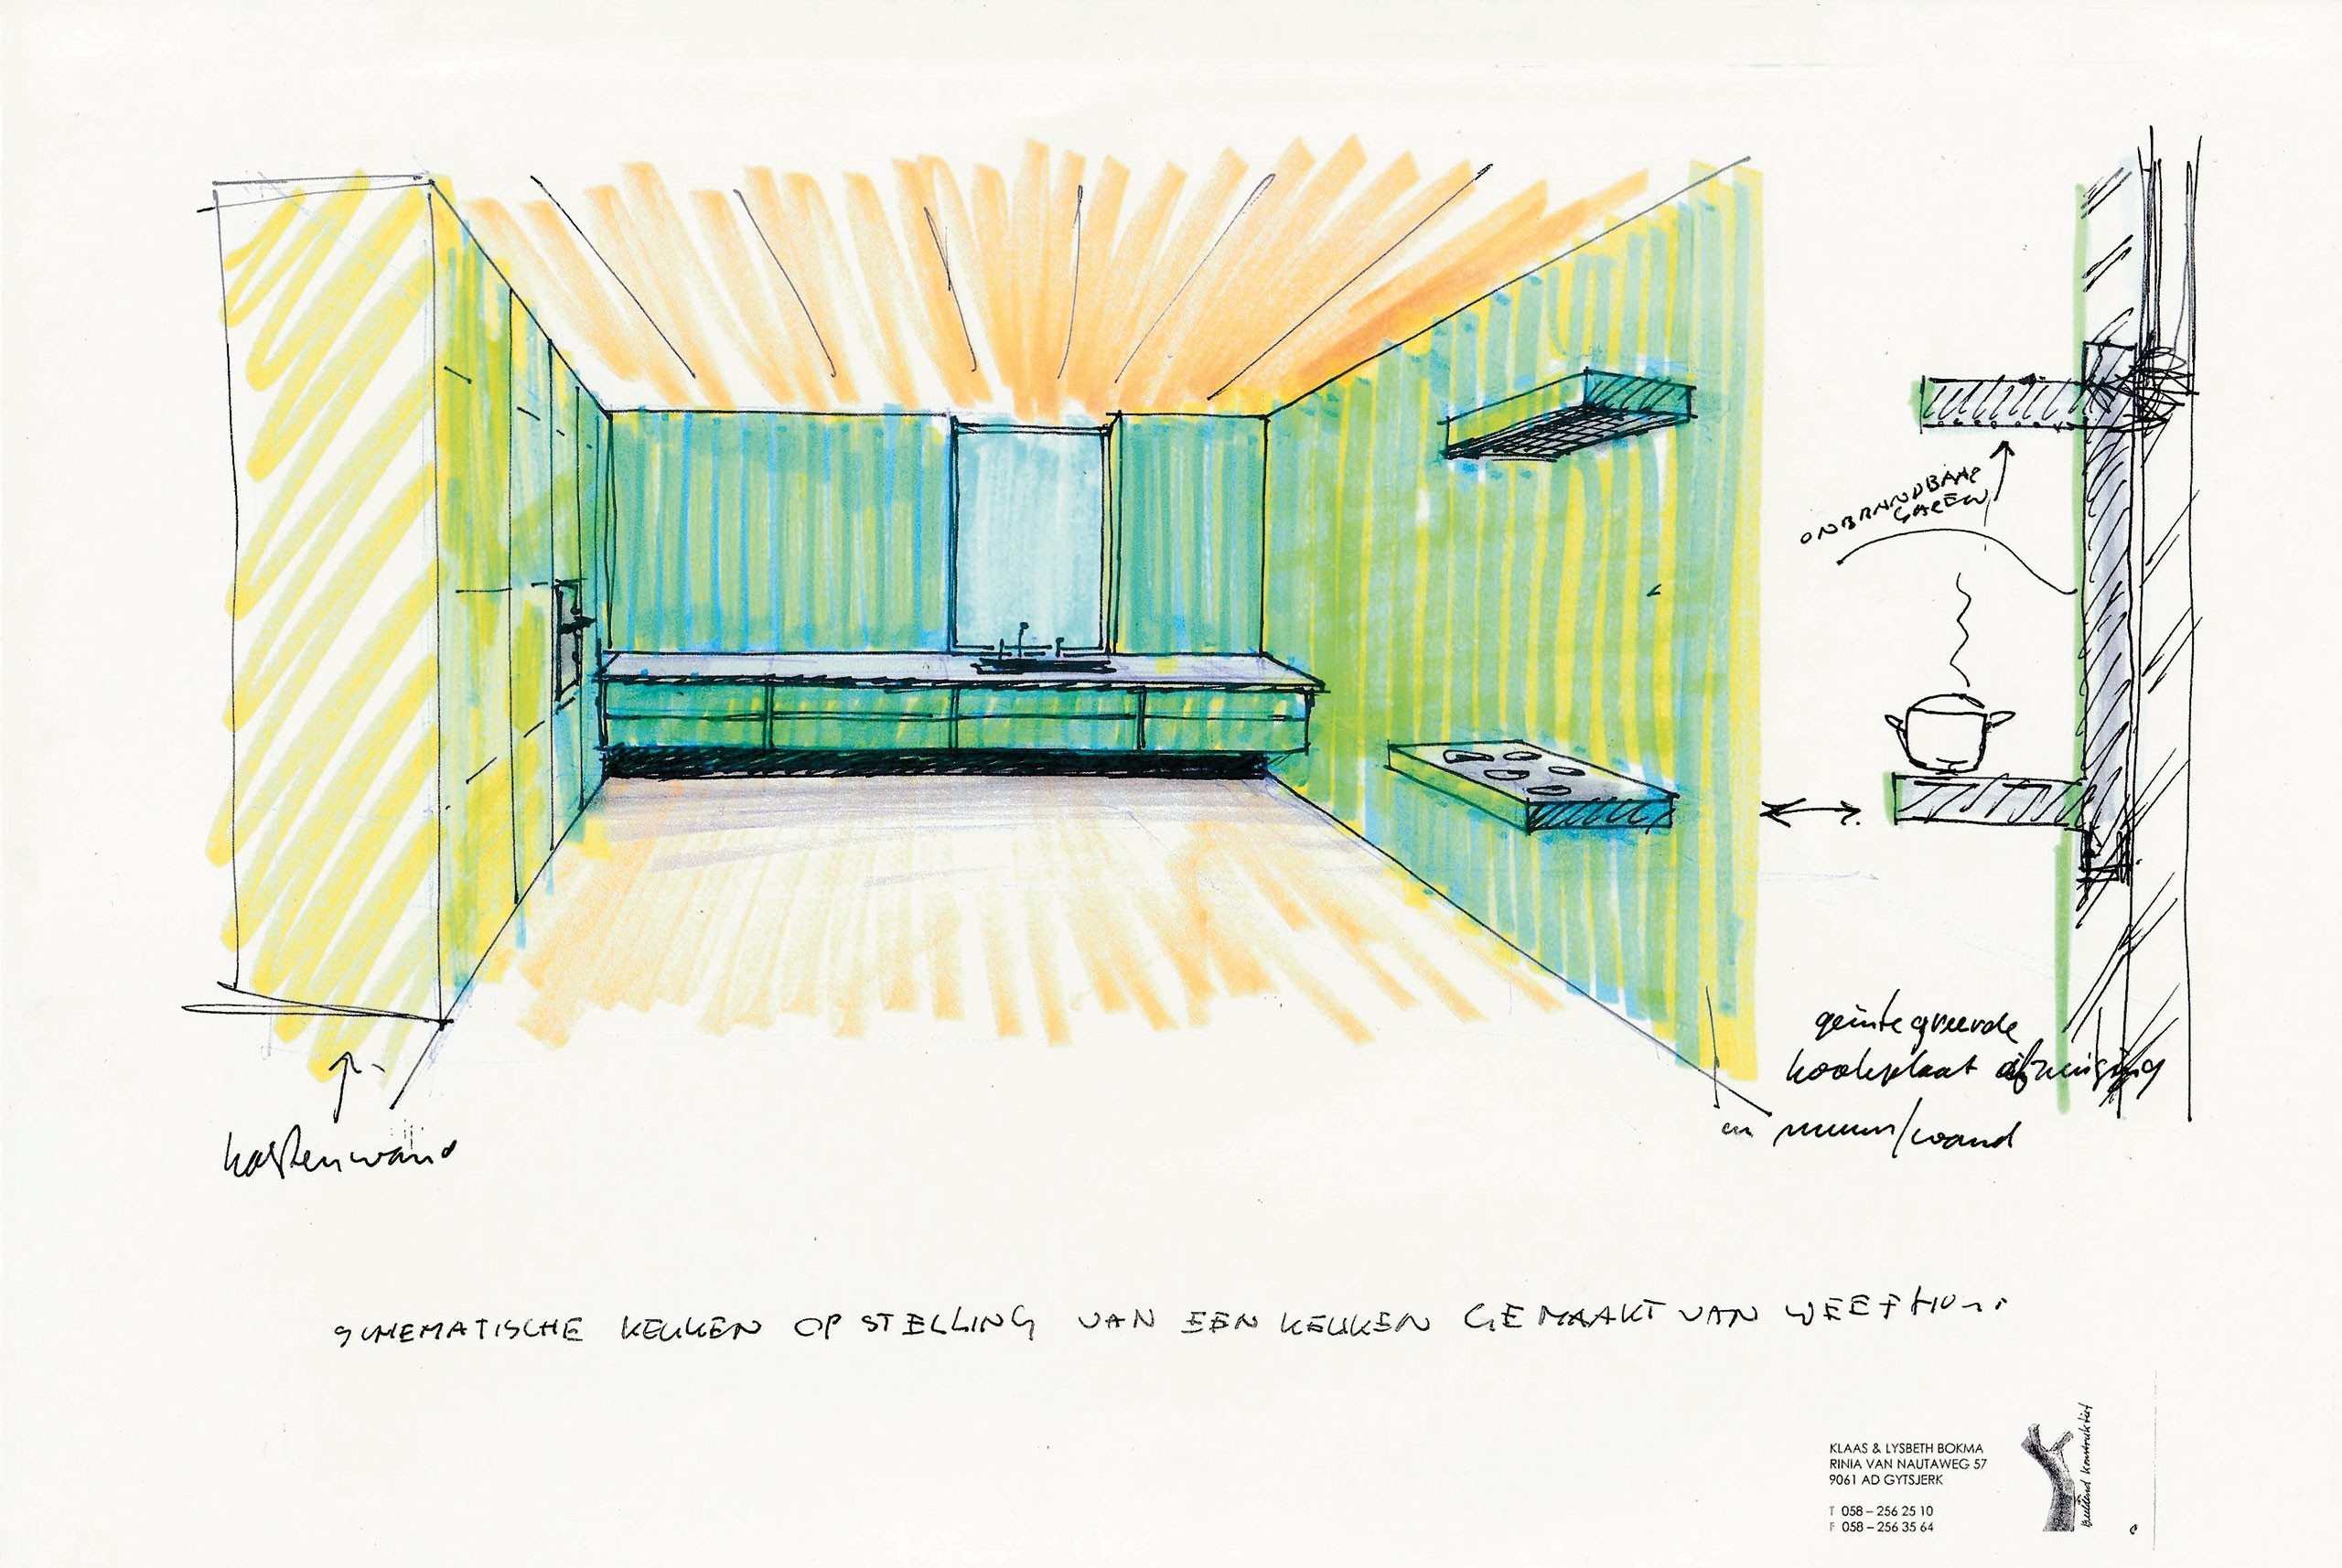 ONBRANDBAAR
GAREN
geintegreerde
kookplaat afzuiging
en muur/wand
kastenwand
SCHEMATISCHE KEUKEN OPSTELLING VAN EEN KEUKEN GEMAAKT VAN WEEFHOUT
KLAAS & LYSBETH BOKMA
RINIA VAN NAUTAWEG 57
9061 AD GYTSJERK
T 058 – 256 25 10
F 058 – 256 35 64
beeldend konstruktief